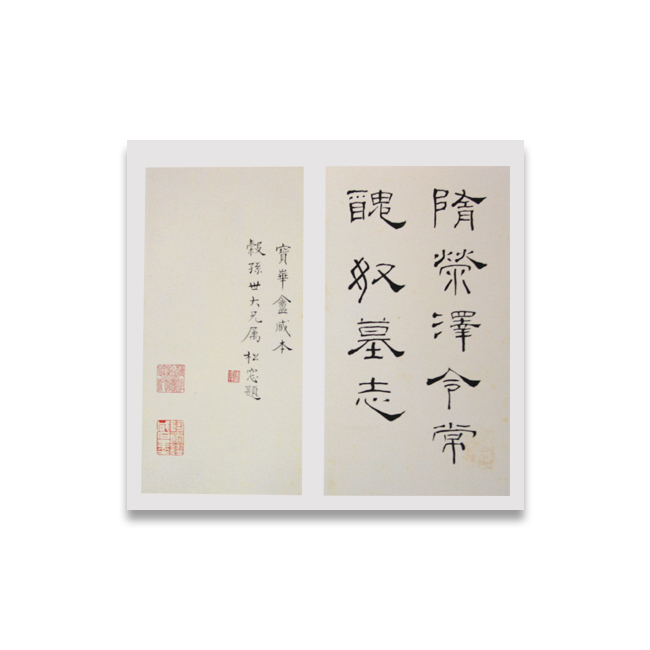 隋荥澤令常
醜奴墓志
寶華盦藏本
穀孫世大兄属 松窓題